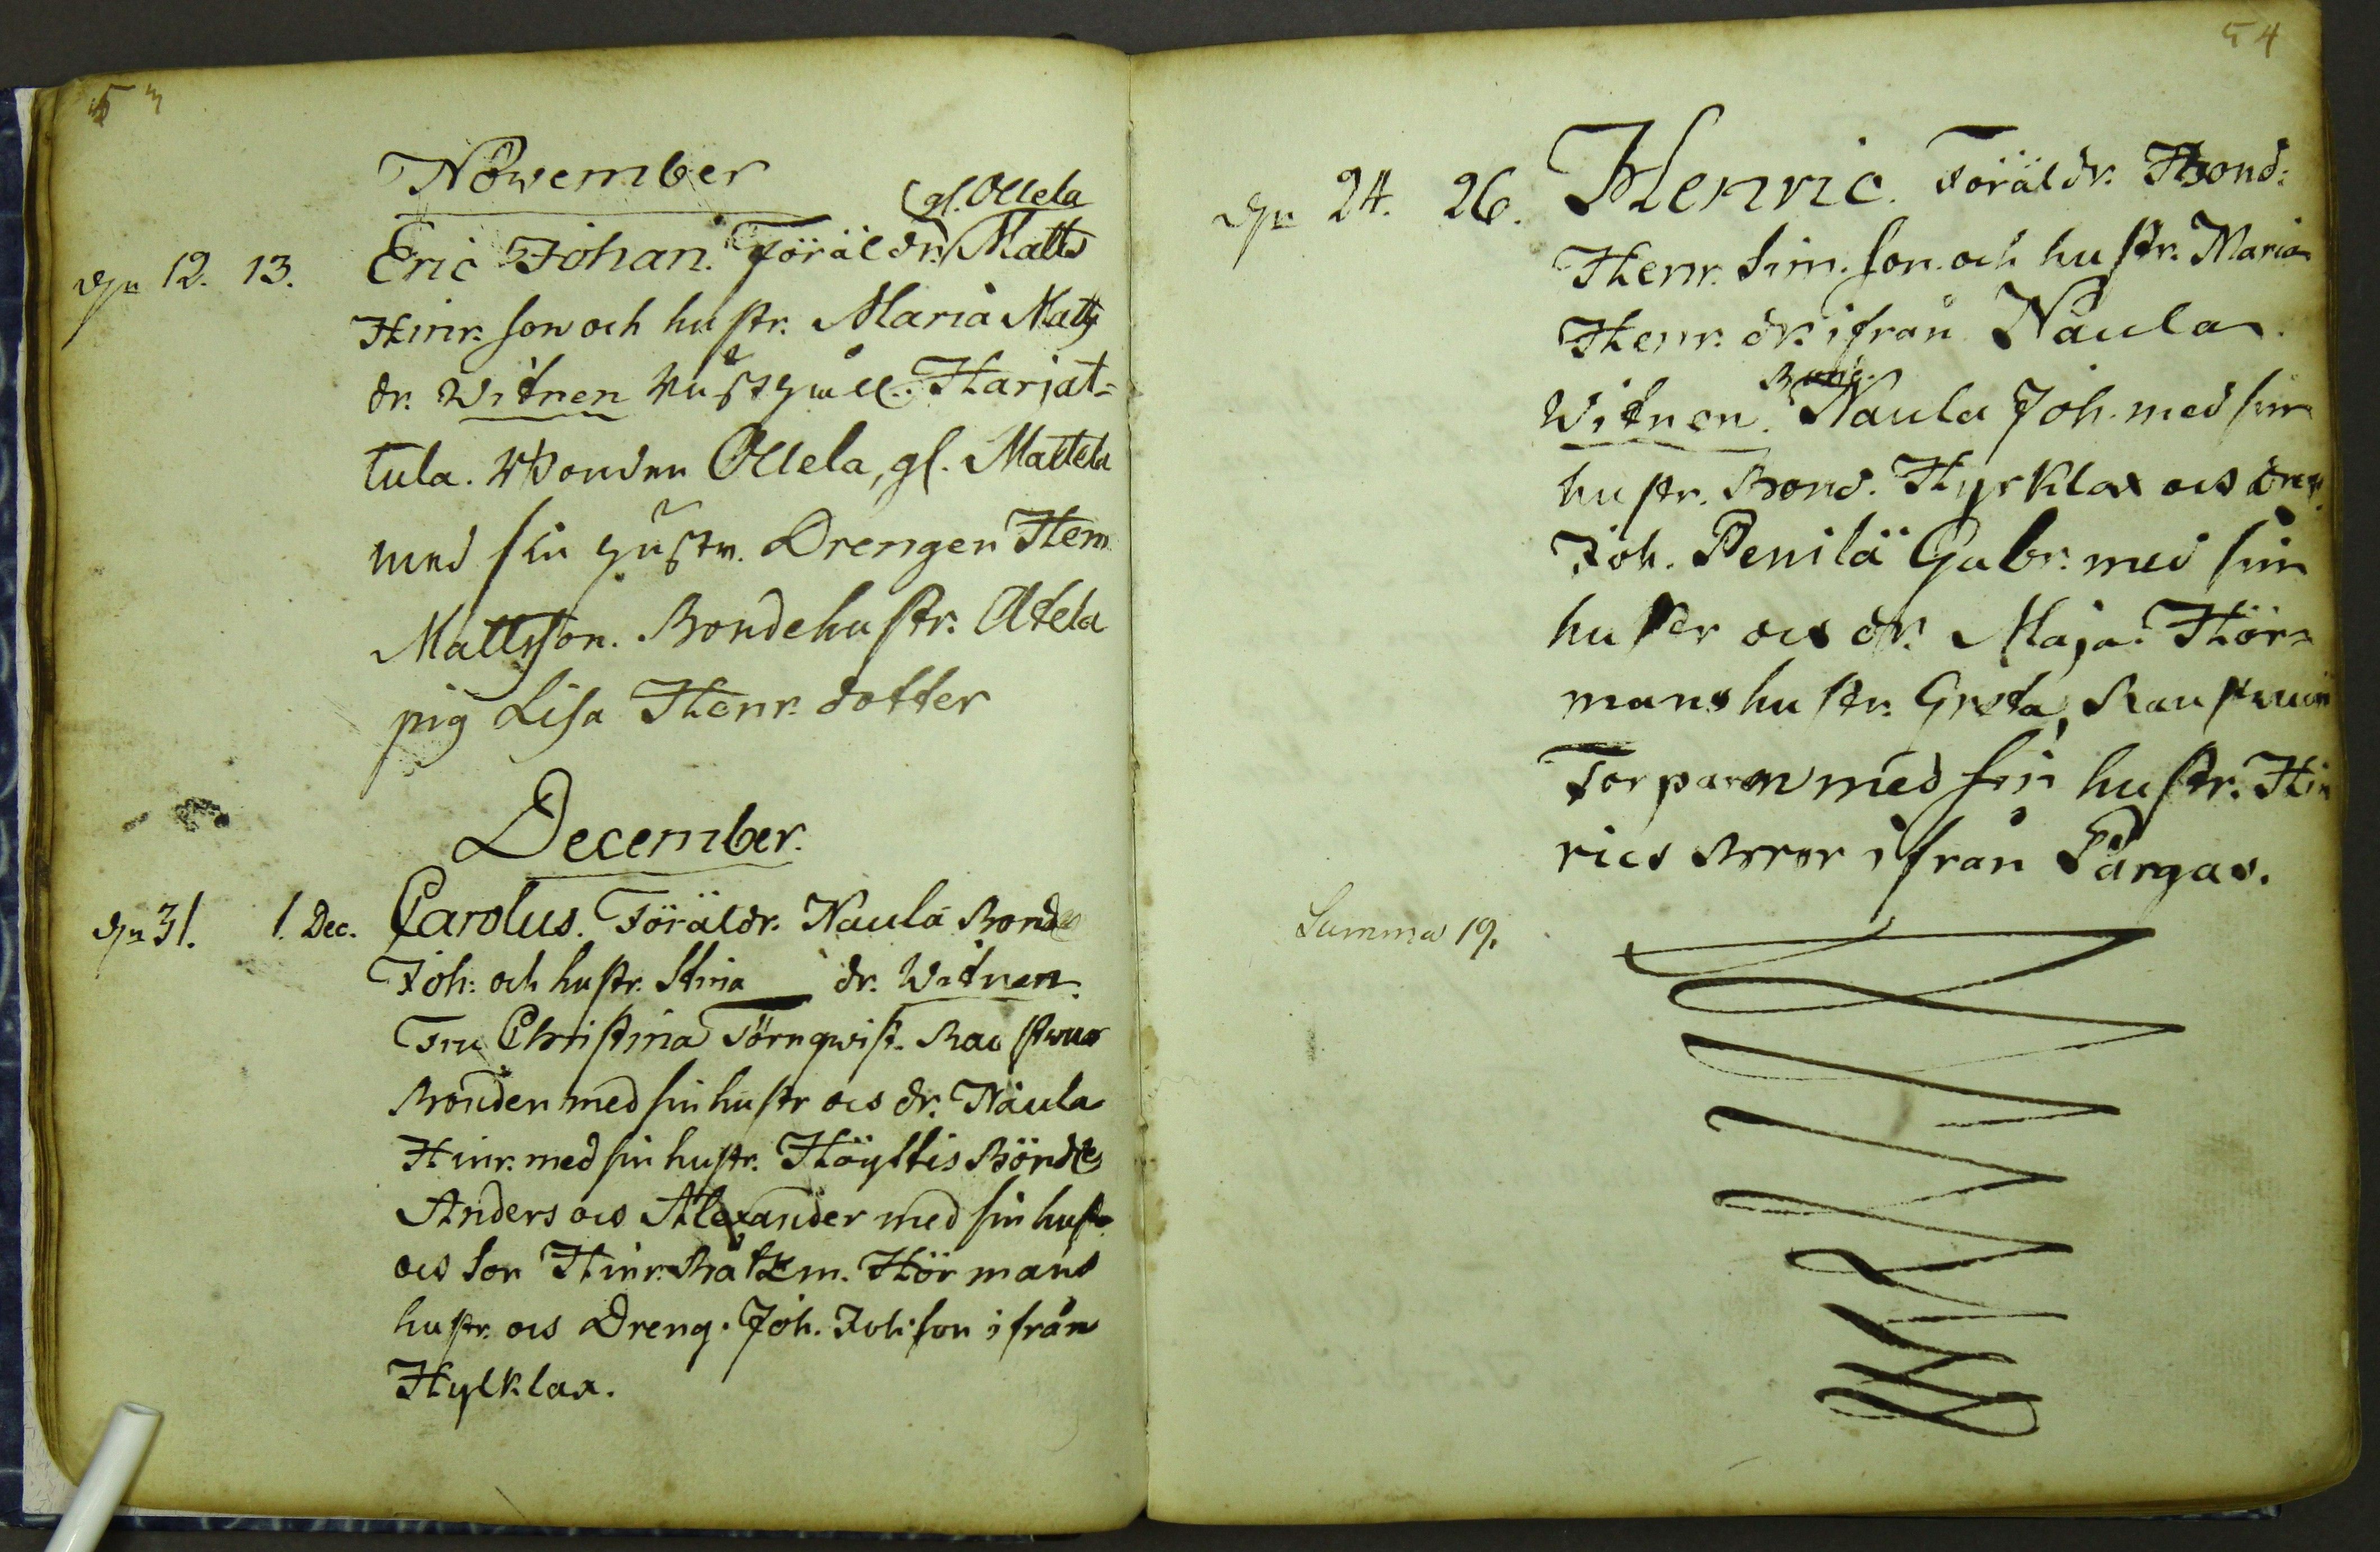 53
November
(gl. Ollela
den 12. 13. Eric Johan. Föräldr. Matts
Hinr. son och hustr. Maria Matts
dr. Witnen Harjat=
tula. Bonden Ollela, gl. Mattela
med sin hustr. Drengen Henr.
Mattsson. Bondehustr. Atela
pig Lisa Henr. dotter
December.
den 31. 1. Dec. Carolus. Föräldr. Naula Bond
Joh: och hustr. Stina dr. Witnen.
Fru Christina Törnqwist.
Bonden med sin hustr och dr. Naula
Hinr. med sin hustr. Höyttis Bönder
Anders och Alexander med sin hustr
och son Hinr. Båtzm. Hörmans
hustr. och Dreng. Joh. Joh: son ifrån
Hylklax.
54
den 24. 26. Henric. Föräldr. Bond:
Henr. Sim. son. och hustr. Maria
Henr. dr. ifrån Naula.
Bond.
Witnen. Naula Joh. med sin
hustr. Bond. Hyrklax och dreng.
Joh. Penilä Gabr. med sin
huster och dr. Maja. Hör=
mans hustr. Greta,
Torparen med sin hustr. Hin
rics Bror ifrån Pargas.
Summa 19.